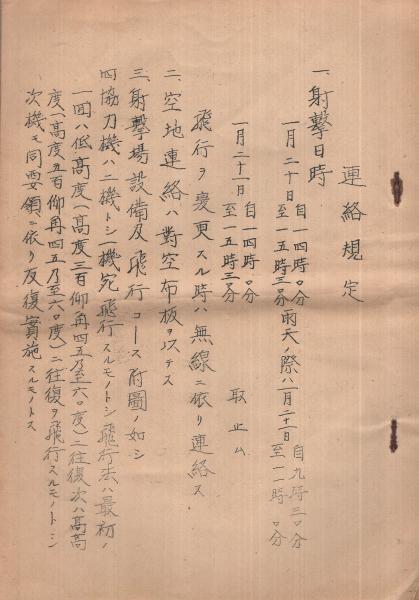 連絡規定
一、射撃日時
一月二十日 自一四時〇分 至一五時三〇分 雨天ノ際ハ一月二十二日 自九時三〇分 至一一時〇分
一月二十一日 自一四時〇分 至一五時三〇分 取止ム
飛行ヲ変更スル時ハ無線ニ依リ連絡ス
二、空地連絡ハ對空布板ヲ以テス
三、射撃場設備及飛行コース附圖ノ如シ
四、協力機ハ二機トシ一機宛飛行スルモノトシ飛行法ハ最初ノ
一回ハ低高度(高度三百仰角四五乃至六〇度)ニ往復次ハ高高
度(高度五百仰角四五乃至六〇度)ニ往復ヲ飛行スルモノトシ
次機モ同要領ニ依リ反復實施スルモノトス